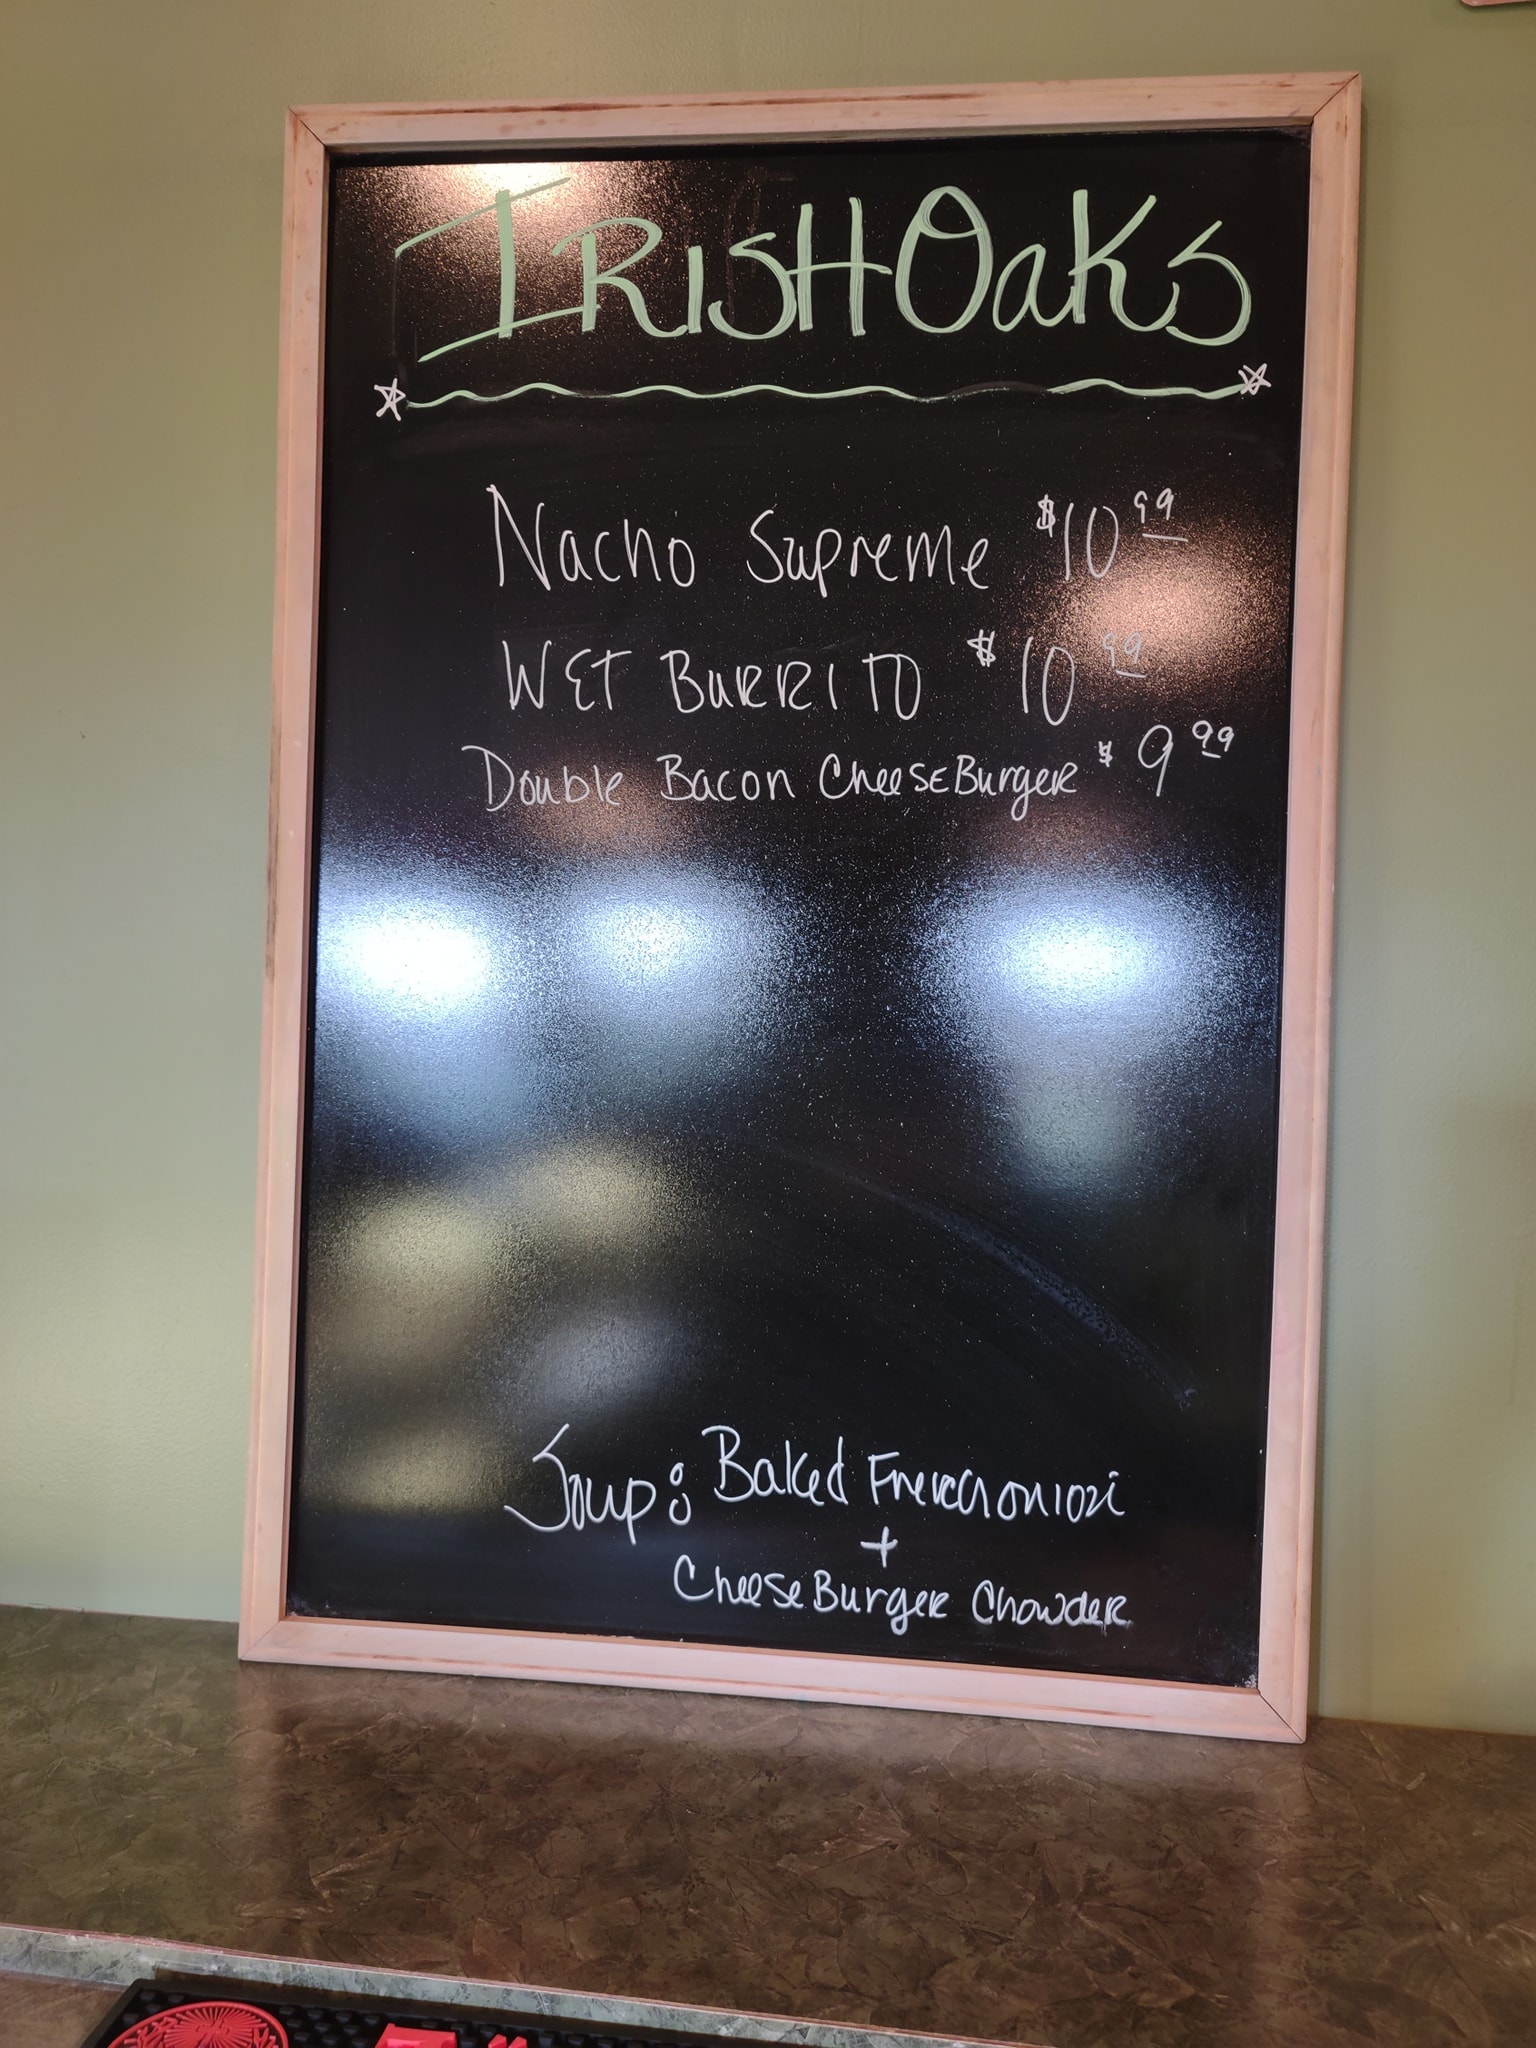 IRISH Oaks
Nacho Supreme $10 99
WET BURRITO $10 99
Double Bacon CheeseBurger $9 99
Soup: Baked
+
CheeseBurger Chowder